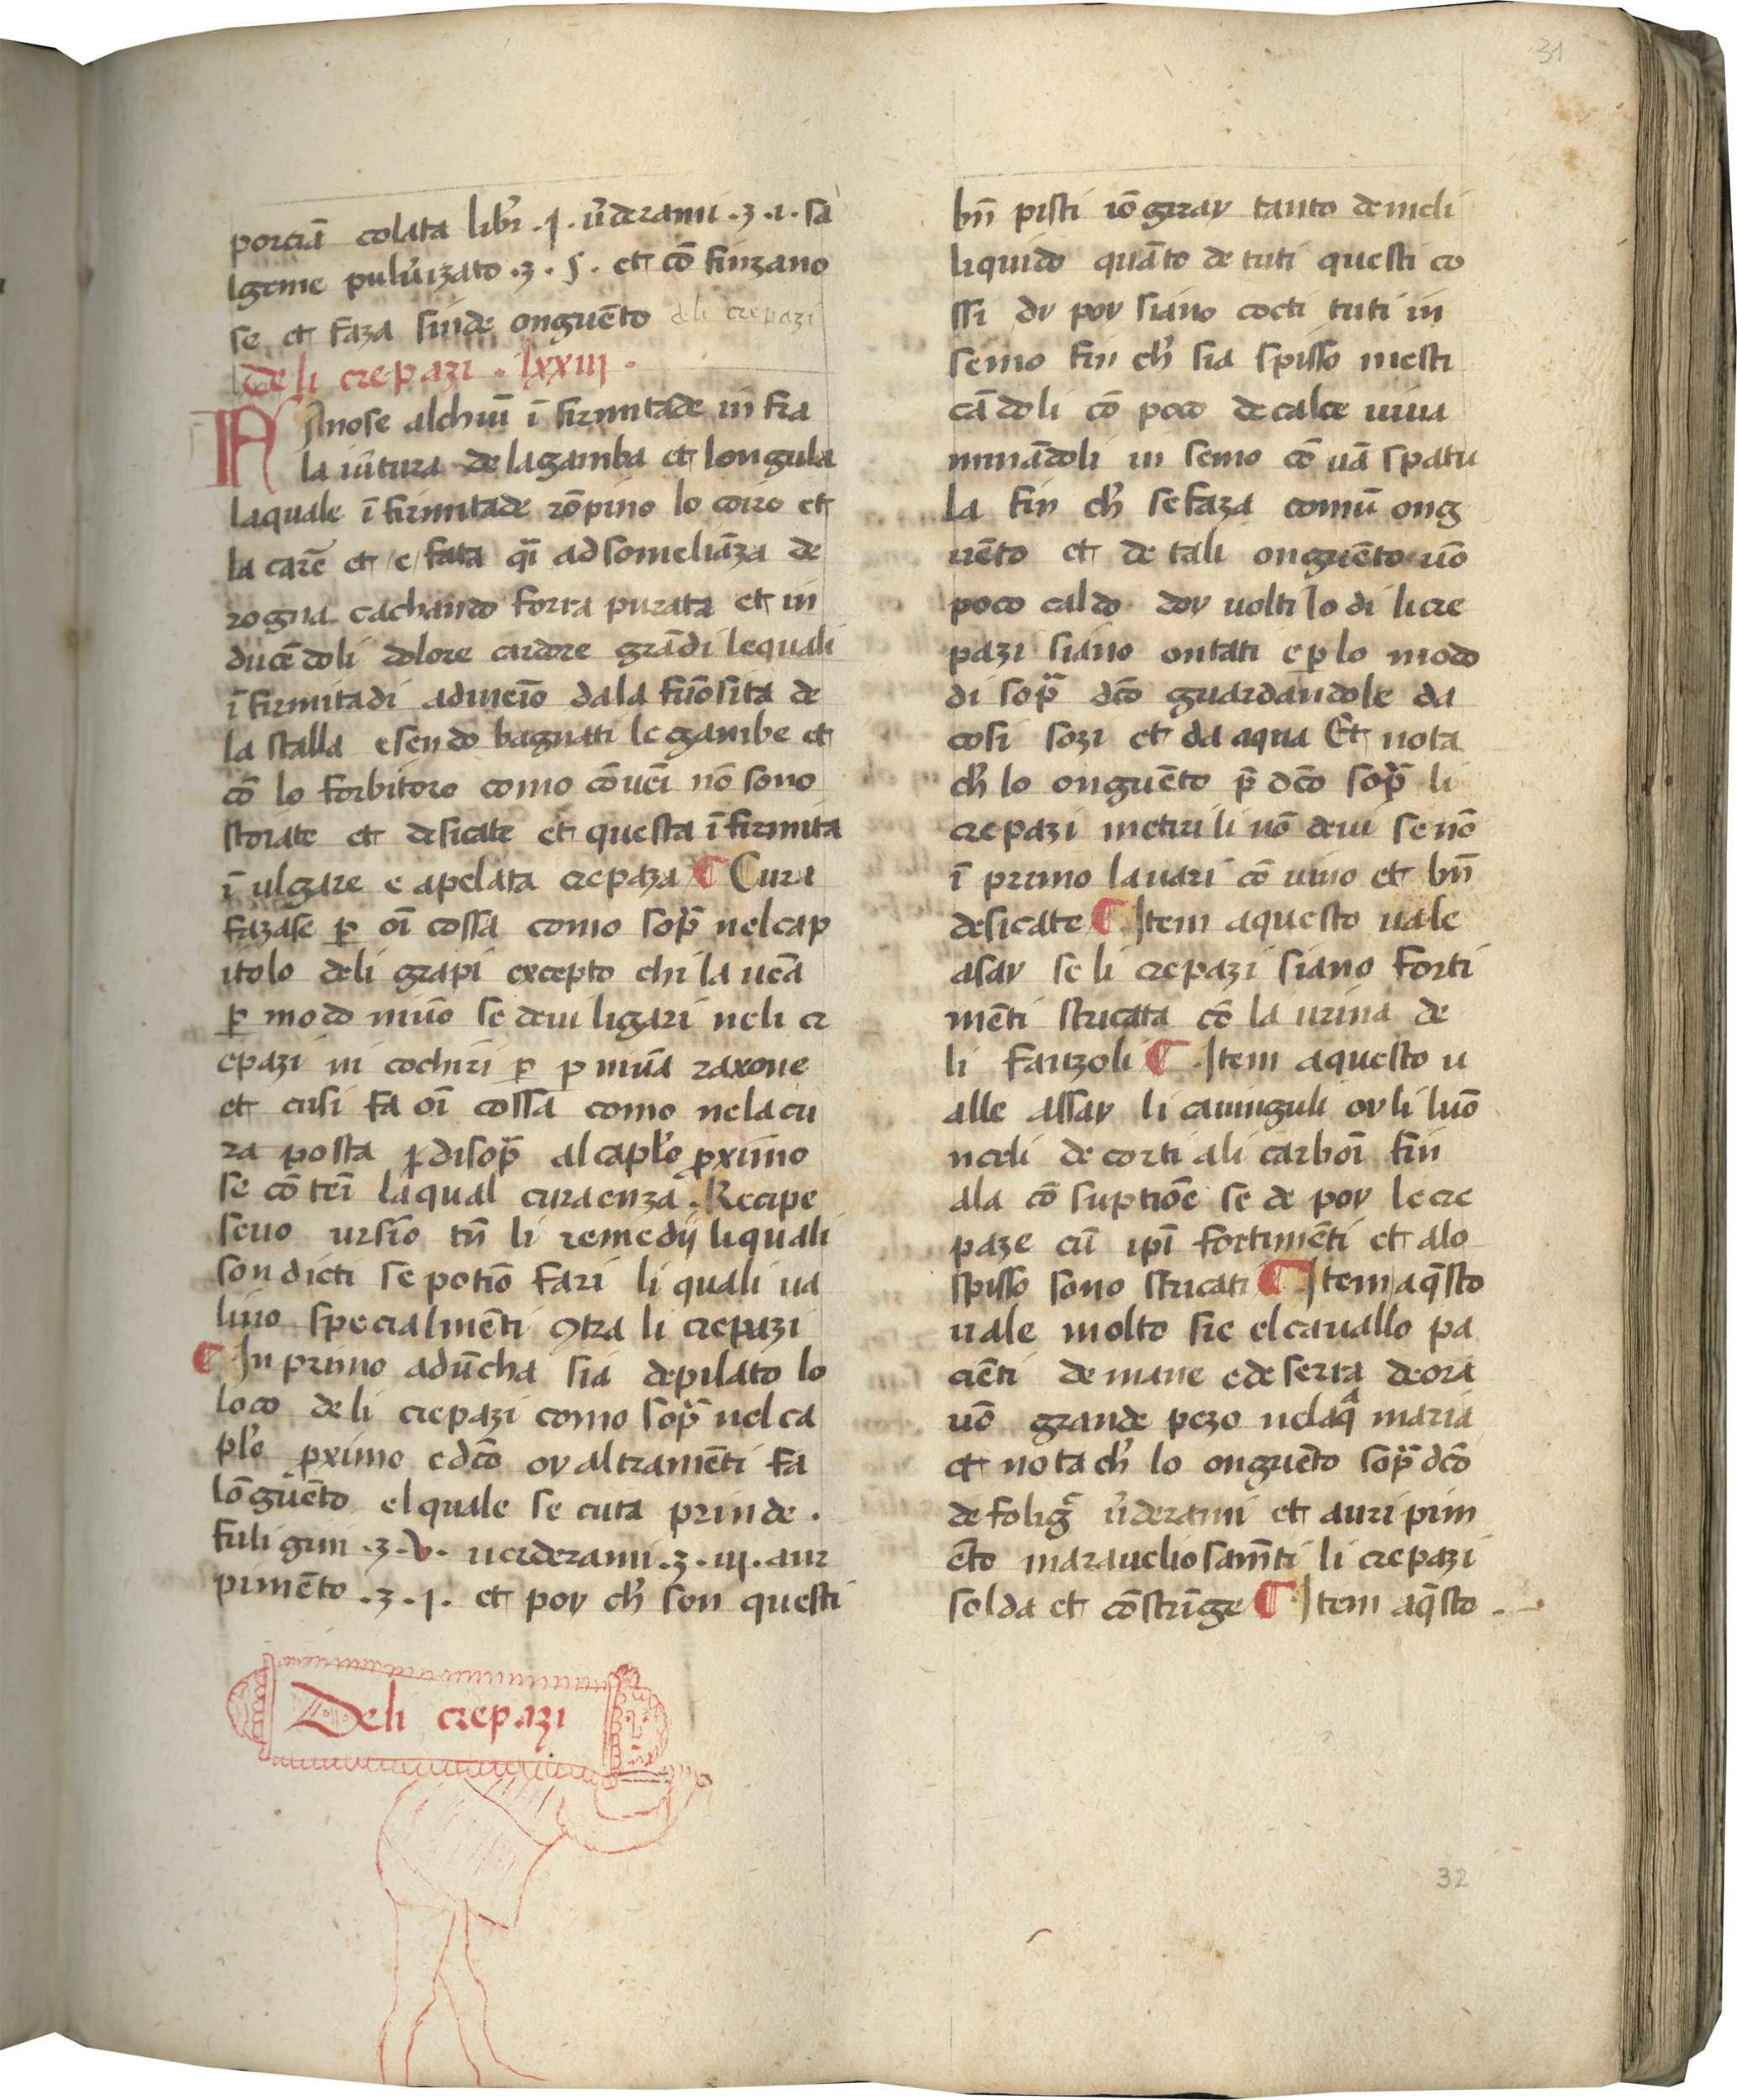 31
porciā colata libr̄ .j. v̄deramii .ʒ.ı. sa
lgeme pulu̓izato .ʒ. ſ. et cō finzano
se et faza finde onguēto deli crepazi
Deli crepazi . lxxiij .
NAsinose alchuī ī firmitade in fra
la iūtura de lagamba et longula
laquale ī firmitade rōpino lo coiro et
la carē et /e/ fata qī adsomeliāza de
rogna cachando forra purata et in
ducēdoli dolore cardore grādi lequali
ī firmitadi adineīo dala fūosita de
la stalla esendo bagnati le gambe et
cō lo forbitoro como cōueī nō sono
storiate et desicate et questa ī firmita
ī ulgare e apelata crepaza ¶ Cura
fazase ꝑ oī cossa como sopᷓ nelcap
itolo deli grapi excepto chi la uēa
ꝑ modo niūo se deui ligari neli cr
epazi in cochiri ꝑ p niūa raxone
et cusi fa oī cossa como nelacu
ra posta ꝑdisopᷓ al caplo̓ ꝓximo
se cō teī laqual curaenza . Recipe
seuo ursīo tn̄ li remedij liquali
son dicti se potīo fari li quali ua
lino specialmēti ꝯtra li crepazi
¶ In primo adūcha sia depilato lo
loco deli crepazi como sopᷓ nel ca
plo̓ ꝓximo edc̄o ov altramēti fa
lōguēto elquale se cuta prinde .
fuligini .ʒ.v. uerderami .ʒ.iij. aur
pimēto .ʒ.j. et poy ch̓ son questi
Deli crepazi
bn̄ pisti iōgiray tanto demeli
liquido quāto de tuti questi co
ssi dy poy siano cocti tuti in
semo fin ch̓ sia spisso mesti
cādoli cō poco decalce uiua
minādoli in semo cō uā spatu
la fin ch̓ sefaza comū ong
uēto et de tali onguēto uō
poco caldo doy uolti lo di licre
pazi siano ontati eꝑ lo modo
di sopᷓ dc̄o guardandole da
cosi sozi et da aqua Et nota
ch̓ lo onguēto p̄ dc̄o sopᷓ li
crepazi metirili nō deui se nō
ī primo lauari cō uino et bn̄
desicate ¶ Item aquesto uale
asay se li crepazi siano forti
mēti stricata cō la urina de
li fanzoli ¶ Item aquesto u
alle assay li cauinguli oyli luō
nceli de corti ali carboī fin
ala cō suptiōe se de poy lecre
paze cū ipī fortimēti et alo
spisso sono stricati ¶ Item aq̄sto
uale molto sie elcauallo pa
cienti de mane ede serra deora
uō grande pezo nelaqᷓ maria
et nota ch̓ lo onguēto sopᷓ dc̄o
de foligᷓ v̄derami et auri pim
ēto marauelio samēti li crepazi
solda et cōstrīge ¶ Item aq̄sto
32